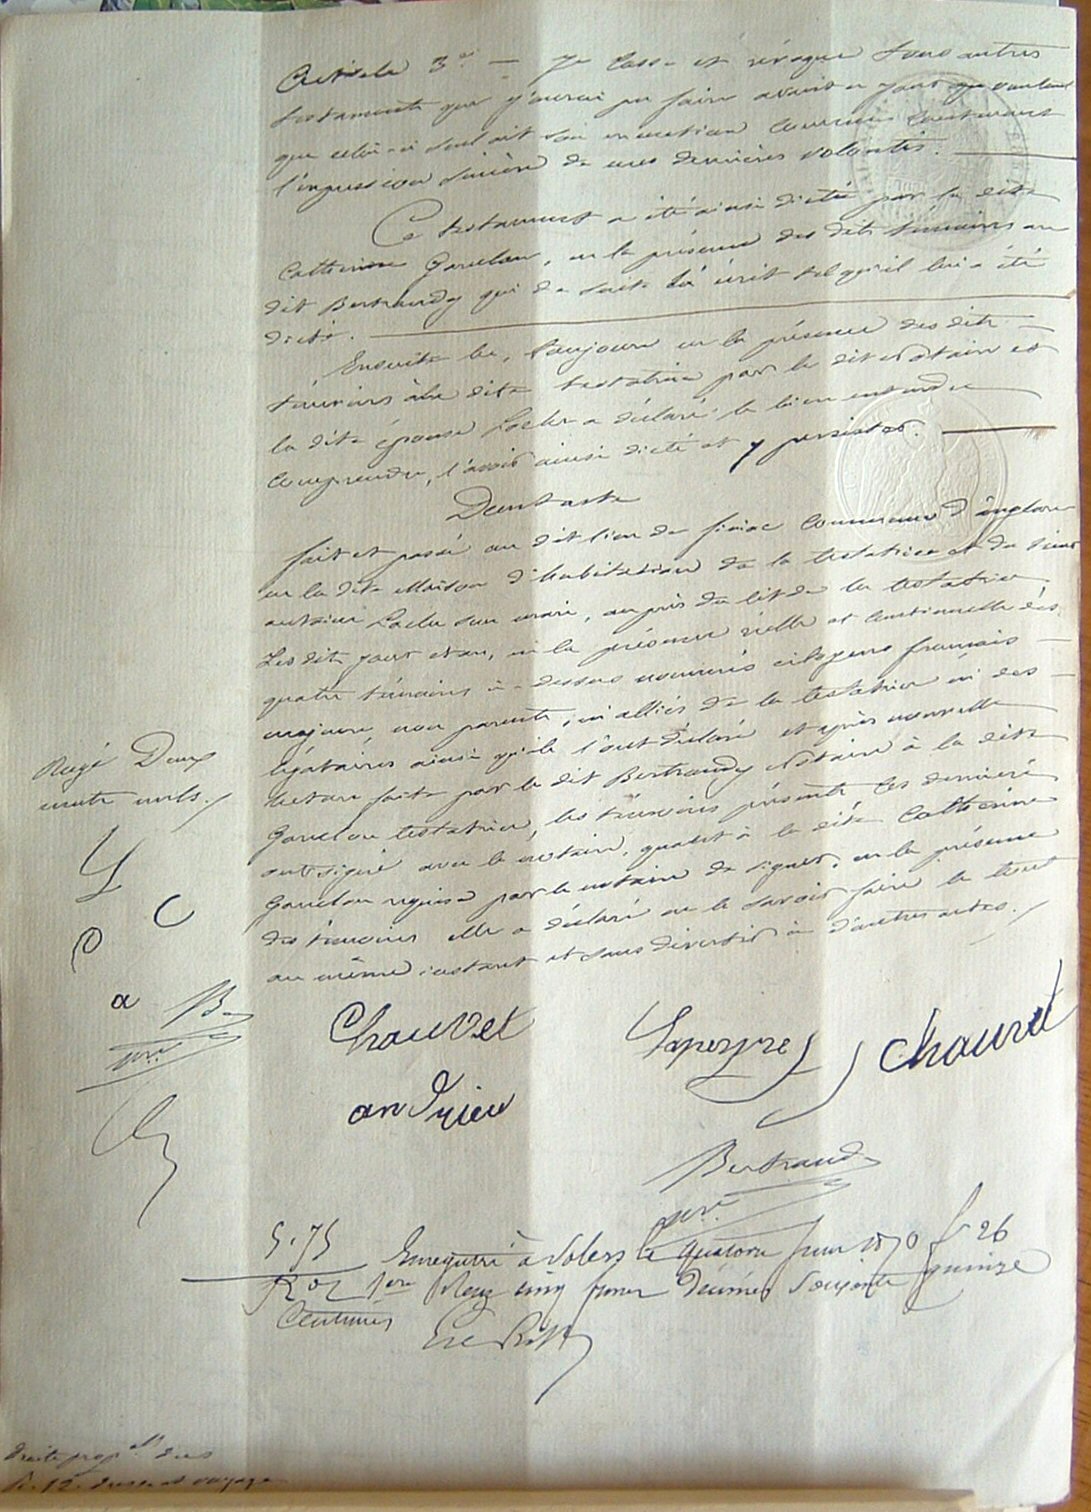 Article 3e — Je casse et révoque tous autres
testaments que j'aurai pu faire avant ce jour voulant
que celui-ci seul ait son exécution comme contenant
l'expression sincère de mes dernières volontés.
Ce testament a été ainsi dicté par la dite
Catherine Gouelou, en la présence des dits témoins au
dit Bertrandy qui de suite l'a écrit tel qu'il lui a été
dicté.
Ensuite lu, toujours en la présence des dits
témoins à la dite testatrice par le dit Notaire et
la dite épouse a déclaré le bien entendre
comprendre, l'avoir ainsi dicté et y persister.
Dont acte
fait et passé au dit lieu de commune d'anglars
en la dite Maison d'habitation de la testatrice et du sieur
antoine son mari, auprès du lit de la testatrice
Les dits jour et an, en la présence réelle et continuelle des
quatre témoins ci-dessus nommés citoyens français
majeurs, non parents, ni alliés de la testatrice ni des
légataires ainsi qu'ils l'ont déclaré et après nouvelle
lecture faite par le dit Bertrandy Notaire à la dite
testatrice, les témoins présents ces derniers
ont signé avec le notaire, quant à la dite Catherine
requise par le notaire de signer, en la présence
des témoins elle a déclaré ne le savoir faire le tout
au même instant et sans divertir à d'autres actes.
Rayé Deux
mots nuls.
C
a B
Chauvet
Chauvet
andrieu
Bertrandy
5.75
Enregistré à le quatorze Juin 1870 f 26
Reçu cinq francs Décimes soixante quinze
Centimes